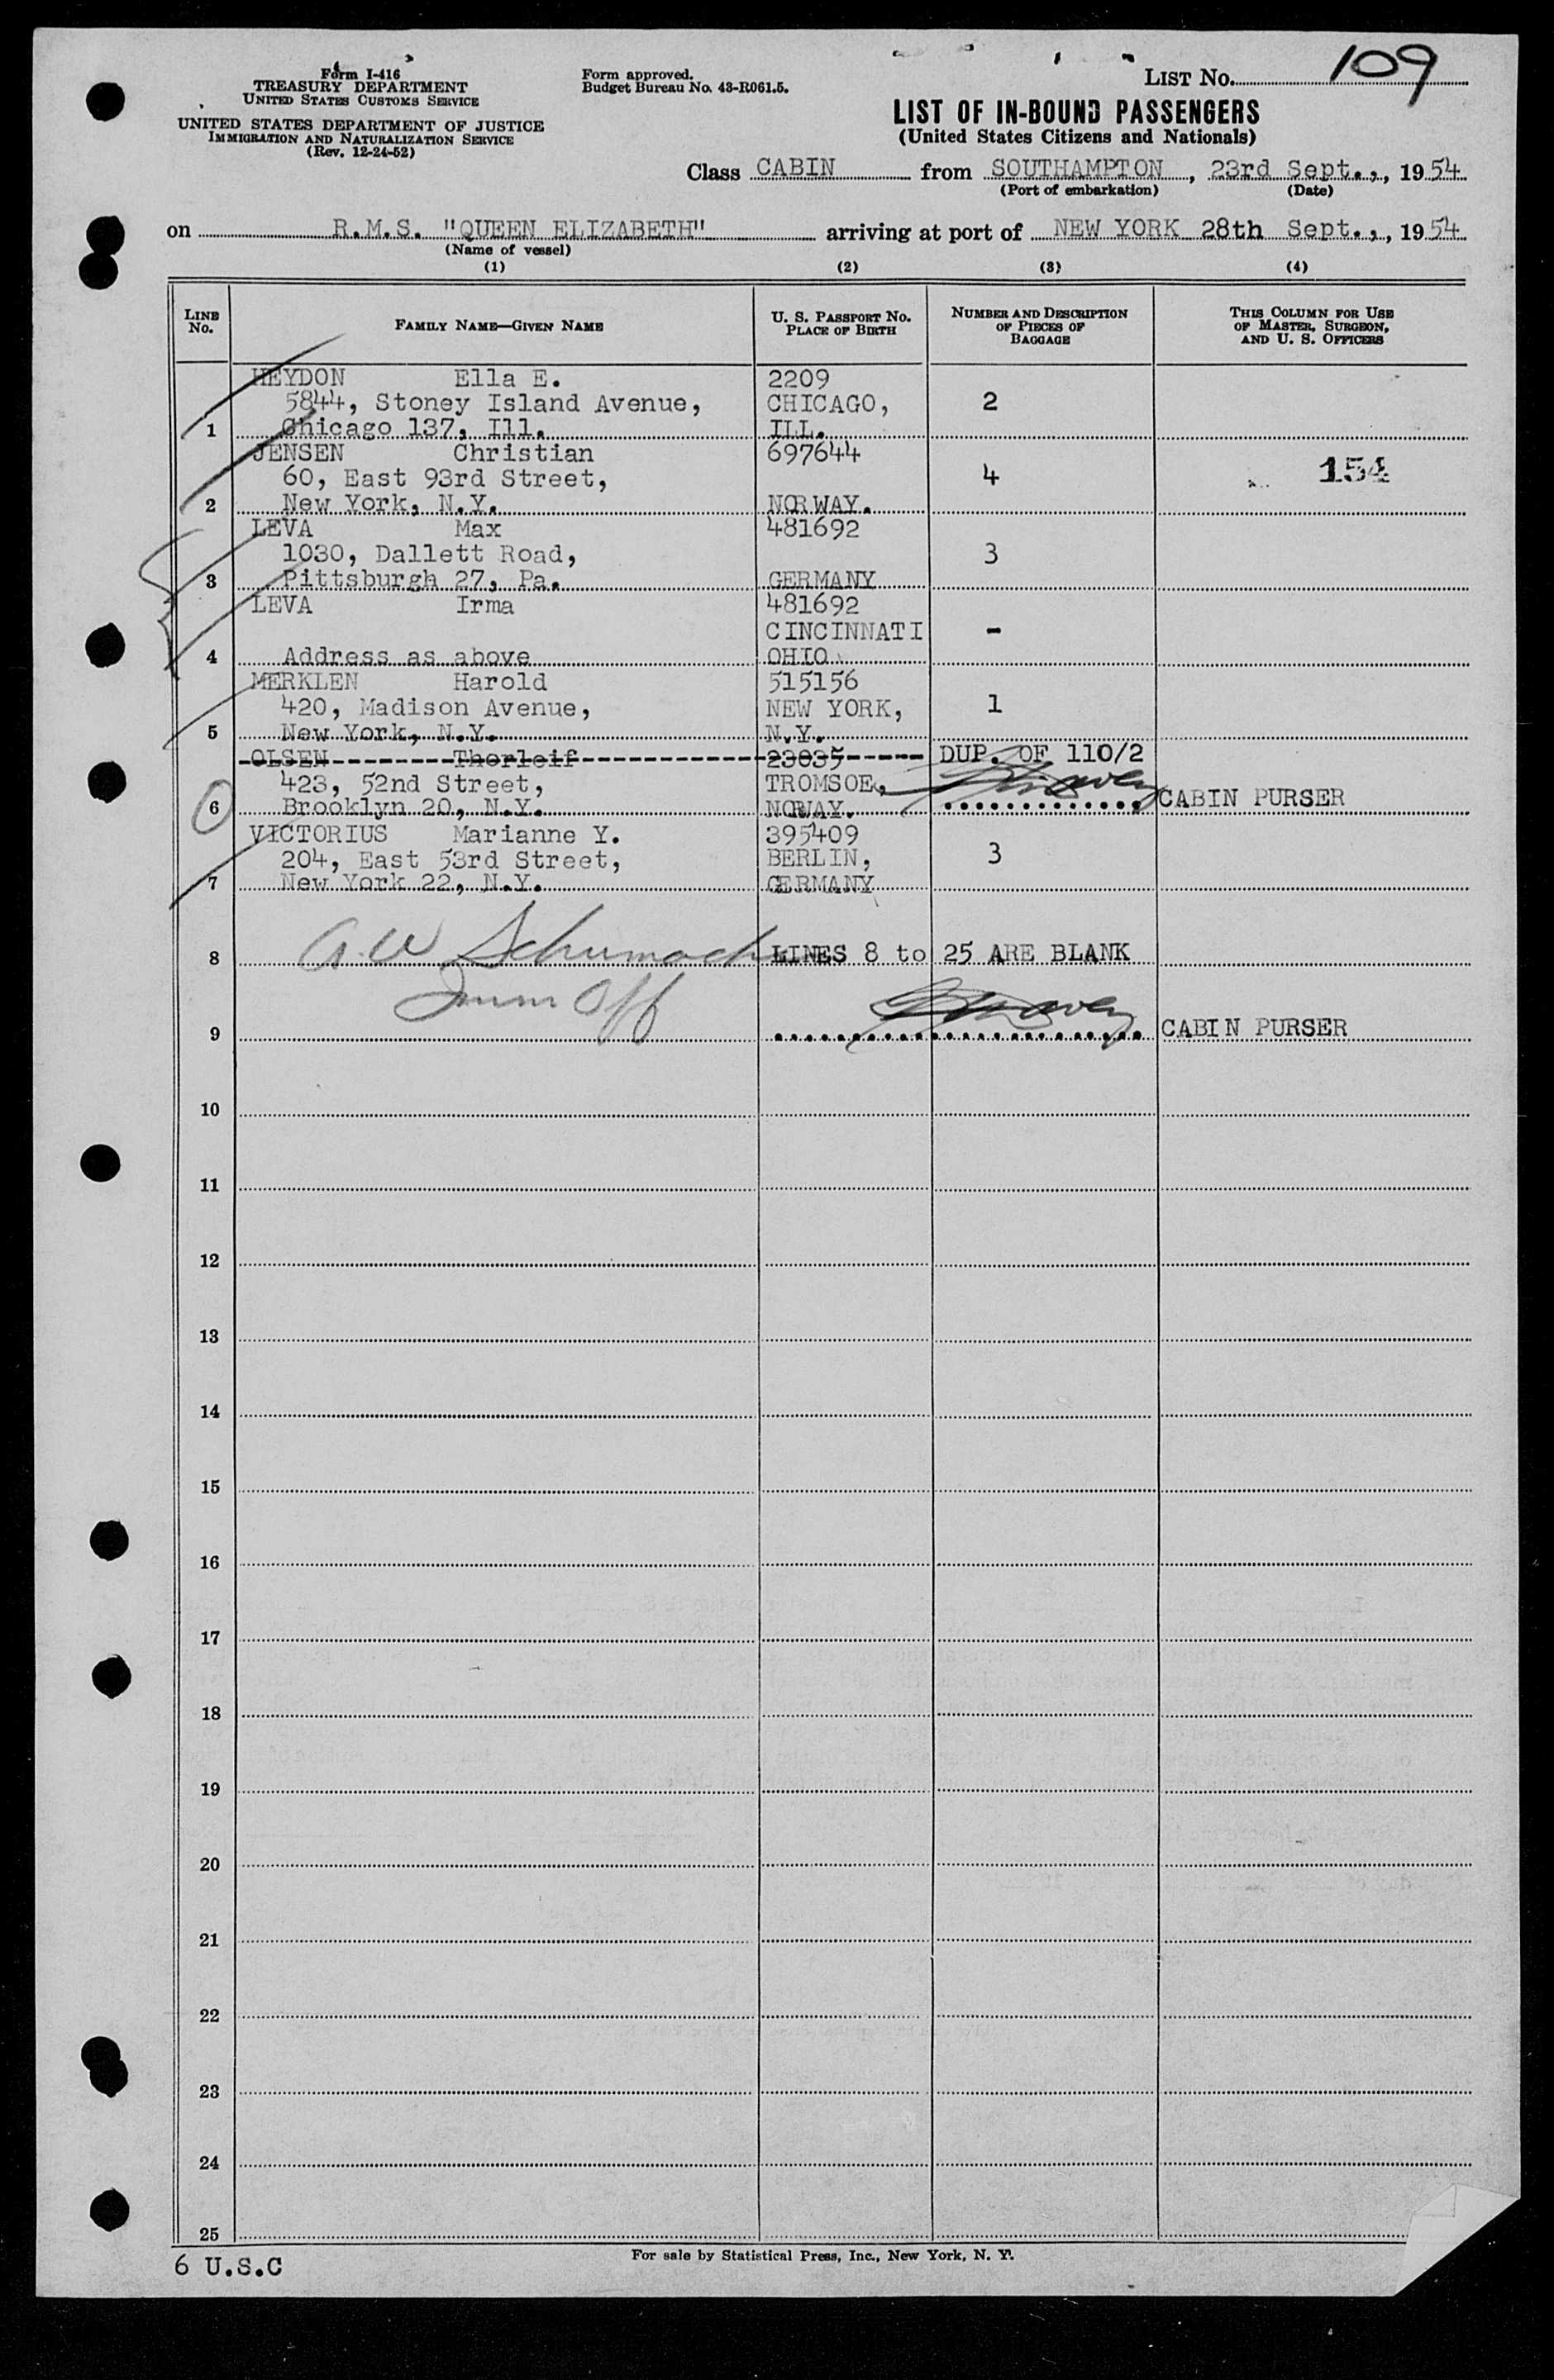 Form I-416
TREASURY DEPARTMENT
UNITED STATES CUSTOMS SERVICE
UNITED STATES DEPARTMENT OF JUSTICE
IMMIGRATION AND NATURALIZATION SERVICE
(Rev. 12-24-52)
Form approved.
Budget Bureau No. 43-R061.5.
LIST NO. 109
LIST OF IN-BOUND PASSENGERS
(United States Citizens and Nationals)
Class CABIN from SOUTHAMPTON, 23rd Sept., 1954
(Port of embarkation) (Date)
on R.M.S. "QUEEN ELIZABETH" arriving at port of NEW YORK 28th Sept., 1954
(Name of vessel)
(1) (2) (3) (4)
LINE NO.
FAMILY NAME—GIVEN NAME
U. S. PASSPORT NO.
PLACE OF BIRTH
NUMBER AND DESCRIPTION
OF PIECES OF
BAGGAGE
THIS COLUMN FOR USE
OF MASTER, SURGEON,
AND U. S. OFFICERS
HEYDON Ella E. 2209
5844, Stoney Island Avenue, CHICAGO, 2
1 Chicago 137, Ill. ILL.
JENSEN Christian 697644
60, East 93rd Street, 4 154
2 New York, N.Y. NORWAY.
LEVA Max 481692
1030, Dallett Road, 3
3 Pittsburgh 27, Pa. GERMANY
LEVA Irma 481692
CINCINNATI -
4 Address as above OHIO
MERKLEN Harold 515156
420, Madison Avenue, NEW YORK, 1
5 New York, N.Y. N.Y.
OLSEN Thorleif 23035 DUP. OF 110/2
423, 52nd Street, TROMSOE,
6 Brooklyn 20, N.Y. NORWAY. CABIN PURSER
VICTORIUS Marianne Y. 395409
204, East 53rd Street, BERLIN, 3
7 New York 22, N.Y. GERMANY
8 A W Schumach LINES 8 to 25 ARE BLANK
Imm Off
9 CABIN PURSER
10
11
12
13
14
15
16
17
18
19
20
21
22
23
24
25
6 U.S.C
For sale by Statistical Press, Inc., New York, N. Y.